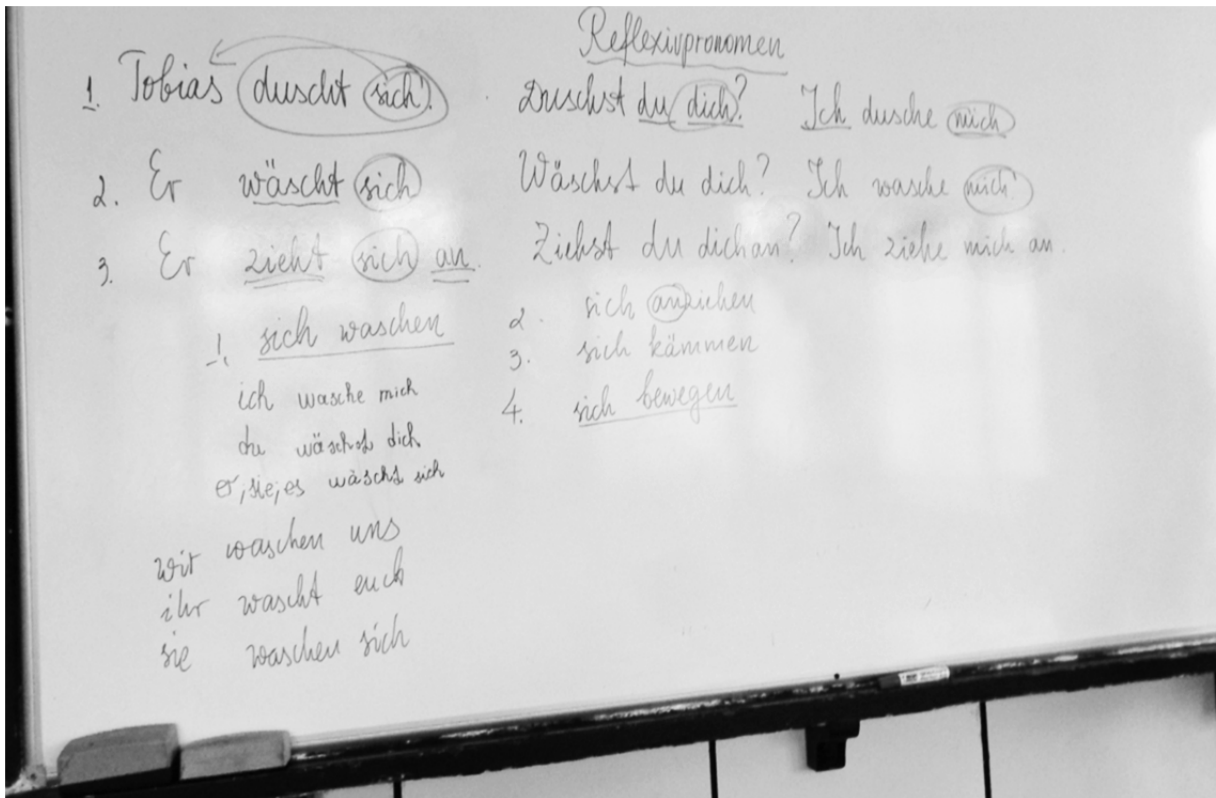 Reflexivpronomen
1. Tobias duscht sich! Duschst du dich? Ich dusche mich
2. Er wäscht sich Wäschst du dich? Ich wasche mich!
3. Er zieht sich an. Ziehst du dich an? Ich ziehe mich an.
1. sich waschen
ich wasche mich
du wäschst dich
er, sie, es wäscht sich
wir waschen uns
ihr wascht euch
sie waschen sich
2. sich anziehen
3. sich kämmen
4. sich bewegen